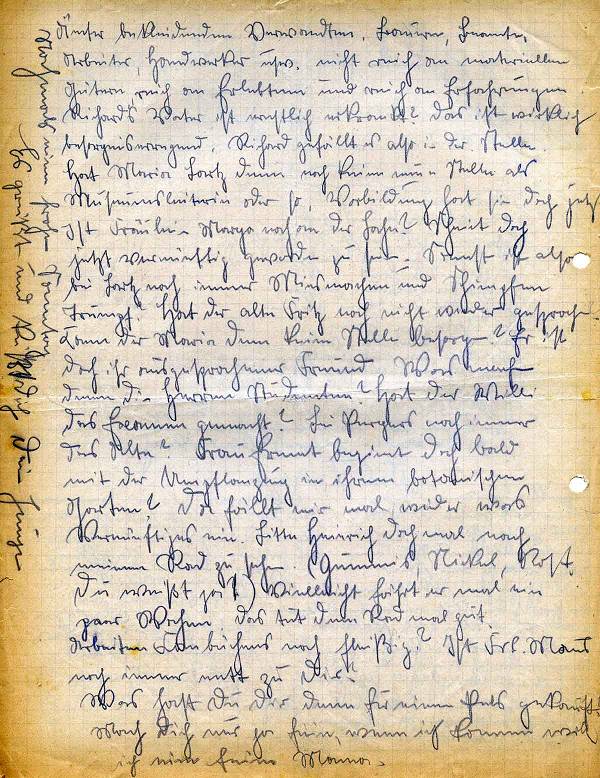 bekleidenden Verwandten, Frauen, Beamte,
Arbeiter, Handwerker usw. nicht reich an materiellen
Gütern reich an Erlebtem und reich an Erfahrungen.
Richards Vater ist rechtlich erkrankt? Das ist wirklich
besorgniserregend. Richard gefällt es also in der Stelle.
Hat Maria Lortz denn noch keine neue Stelle als
Museumsleiterin oder so, Vorbildung hat sie doch jetzt
Ist Fräulein Marga noch an der Bahn? Scheint doch
jetzt vernünftig geworden zu sein. Sonst ist also
bei Lortz noch immer Miesmachen und Schimpfen
Trumpf? Hat der alte Fritz noch nicht wieder gesprochen
Kann der Maria denn keine Stelle besorgen? Er ist
doch ihr ausgesprochener Freund. Was machen
denn die Herren Studenten? Hat der Willi
das Examen gemacht? Bei Purgers noch immer
das Alte? Frau beginnt doch bald
mit der Umpflanzung in ihrem botanischen
Garten? Da fällt mir mal wieder was
Vernünftiges ein. Bitte Heinrich doch mal nach
meinem Rad zu sehn. (Gummi, Nickel, Rost,
Du weißt ja!) Vielleicht fährt er mal ein
paar Wochen, das tut dem Rad mal gut.
Arbeiten noch fleißig? Ist Frl. Maus
noch immer nett zu Dir?
Was hast Du Dir denn für einen Pelz gekauft?
Mach Dich nur ja fein, wenn ich komme will
ich eine feine Mama.
Nochmals einen frohen Sonntag
Es grüßt und küßt Dich Dein Junge